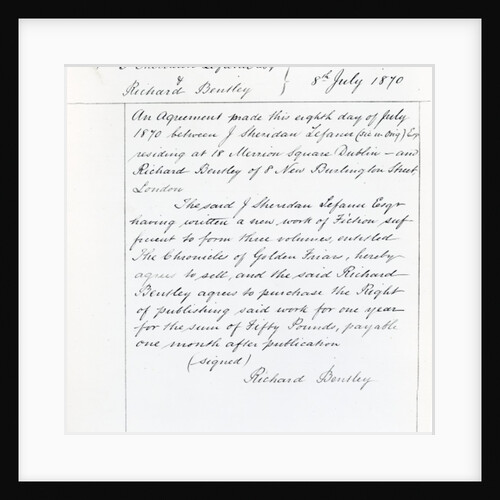 J Sheridan Lefanu Esq,
& 
Richard Bentley } 8th July 1870
An Agreement made this eighth day of July
1870 between J Sheridan Lefanu (sic in orig) Esq
residing at 18 Merrion Square Dublin – and
Richard Bentley of 8 New Burlington Street
London
The said J Sheridan Lefanu Esqr
having written a new work of Fiction suf
ficient to form three volumes, entitled
The Chronicles of Golden Friars, hereby
agrees to sell, and the said Richard
Bentley agrees to purchase the Right
of publishing said work for one year
for the sum of Fifty Pounds, payable
one month after publication
(signed)
Richard Bentley